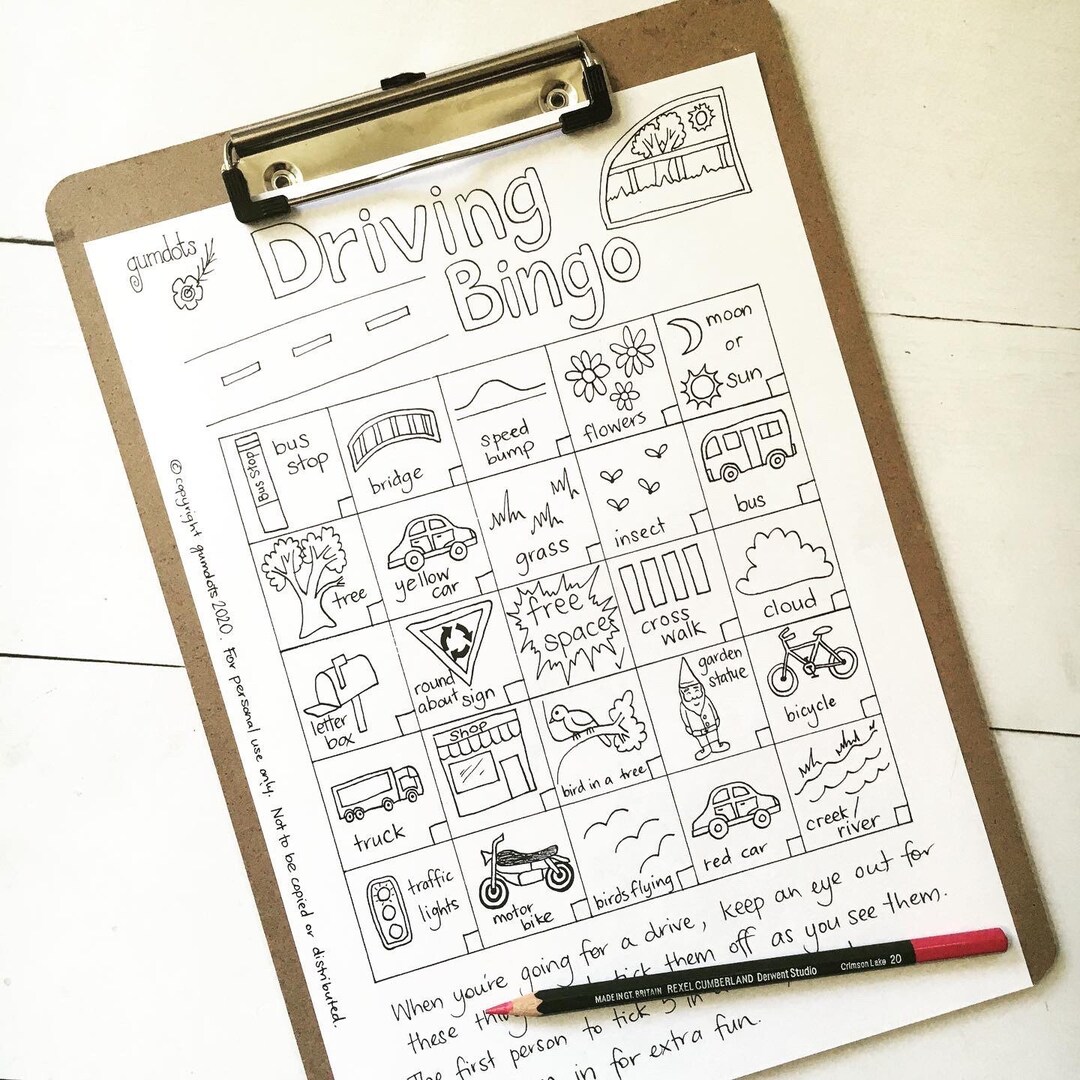 gumdots
Driving
Bingo
bus
stop
Bus stop
bridge
speed
bump
flowers
moon
or
sun
tree
yellow
car
grass
insect
bus
letter
box
round
about sign
free
space
cross
walk
cloud
truck
Shop
bird in a tree
garden
statue
bicycle
traffic
lights
motor
bike
birds flying
red car
creek/
river
© copyright gumdots 2020. For personal use only. Not to be copied or distributed.
When you're going for a drive, keep an eye out for
these tick them off as you see them.
The first person to tick 5 in
in for extra fun.
MADE IN GT. BRITAIN REXEL CUMBERLAND Derwent Studio Crimson Lake 20